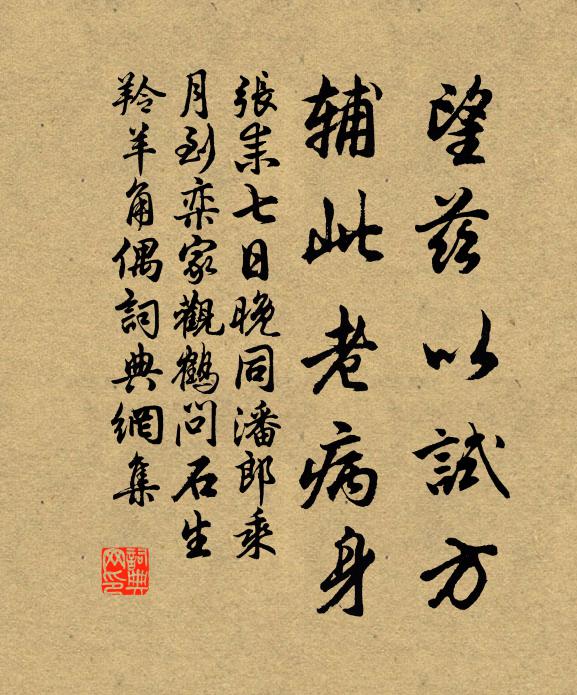 望兹以試方
辅此老病身
張耒七日晚同潘郎乘
月到栾家觀鹤问石生
羚羊角偶詞典網集
詞典网印